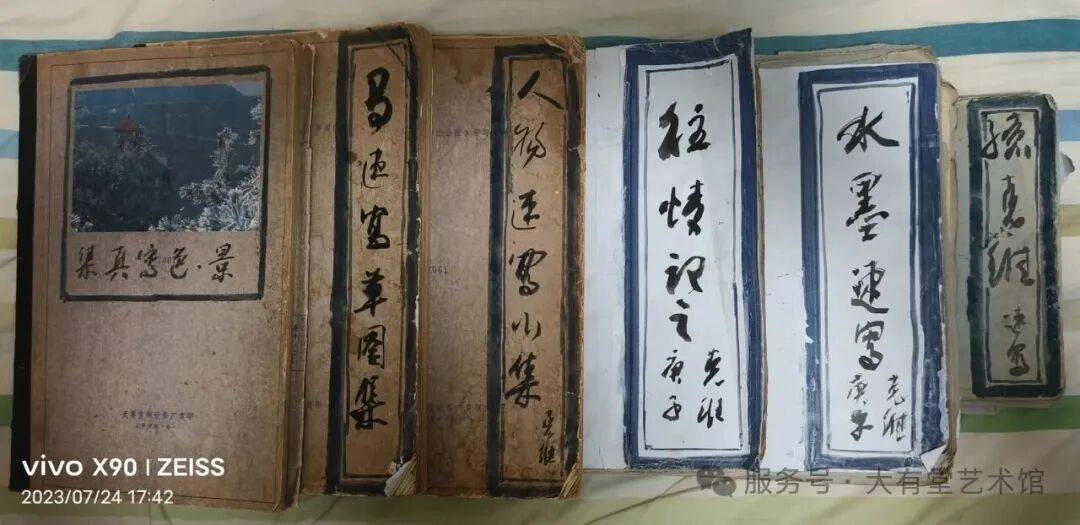 景·色寫真集
速寫草图集
人物速寫小集
克维
往情记之
庚子
克維
水墨速写
庚子
克維
孫克維
速写
vivo X90 | ZEISS
2023/07/24 17:42
服务号·大有堂艺术馆